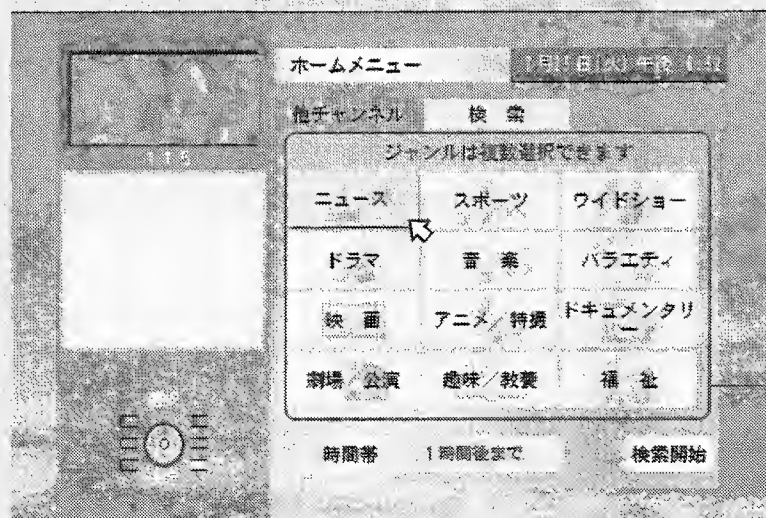 ホームメニュー
他チャンネル 検 索
ジャンルは複数選択できます
ニュース スポーツ ワイドショー
ドラマ 音 楽 バラエティ
映 画 アニメ/特撮 ドキュメンタリー
劇場/公演 趣味/教養 福 祉
時間帯 1時間後まで 検索開始